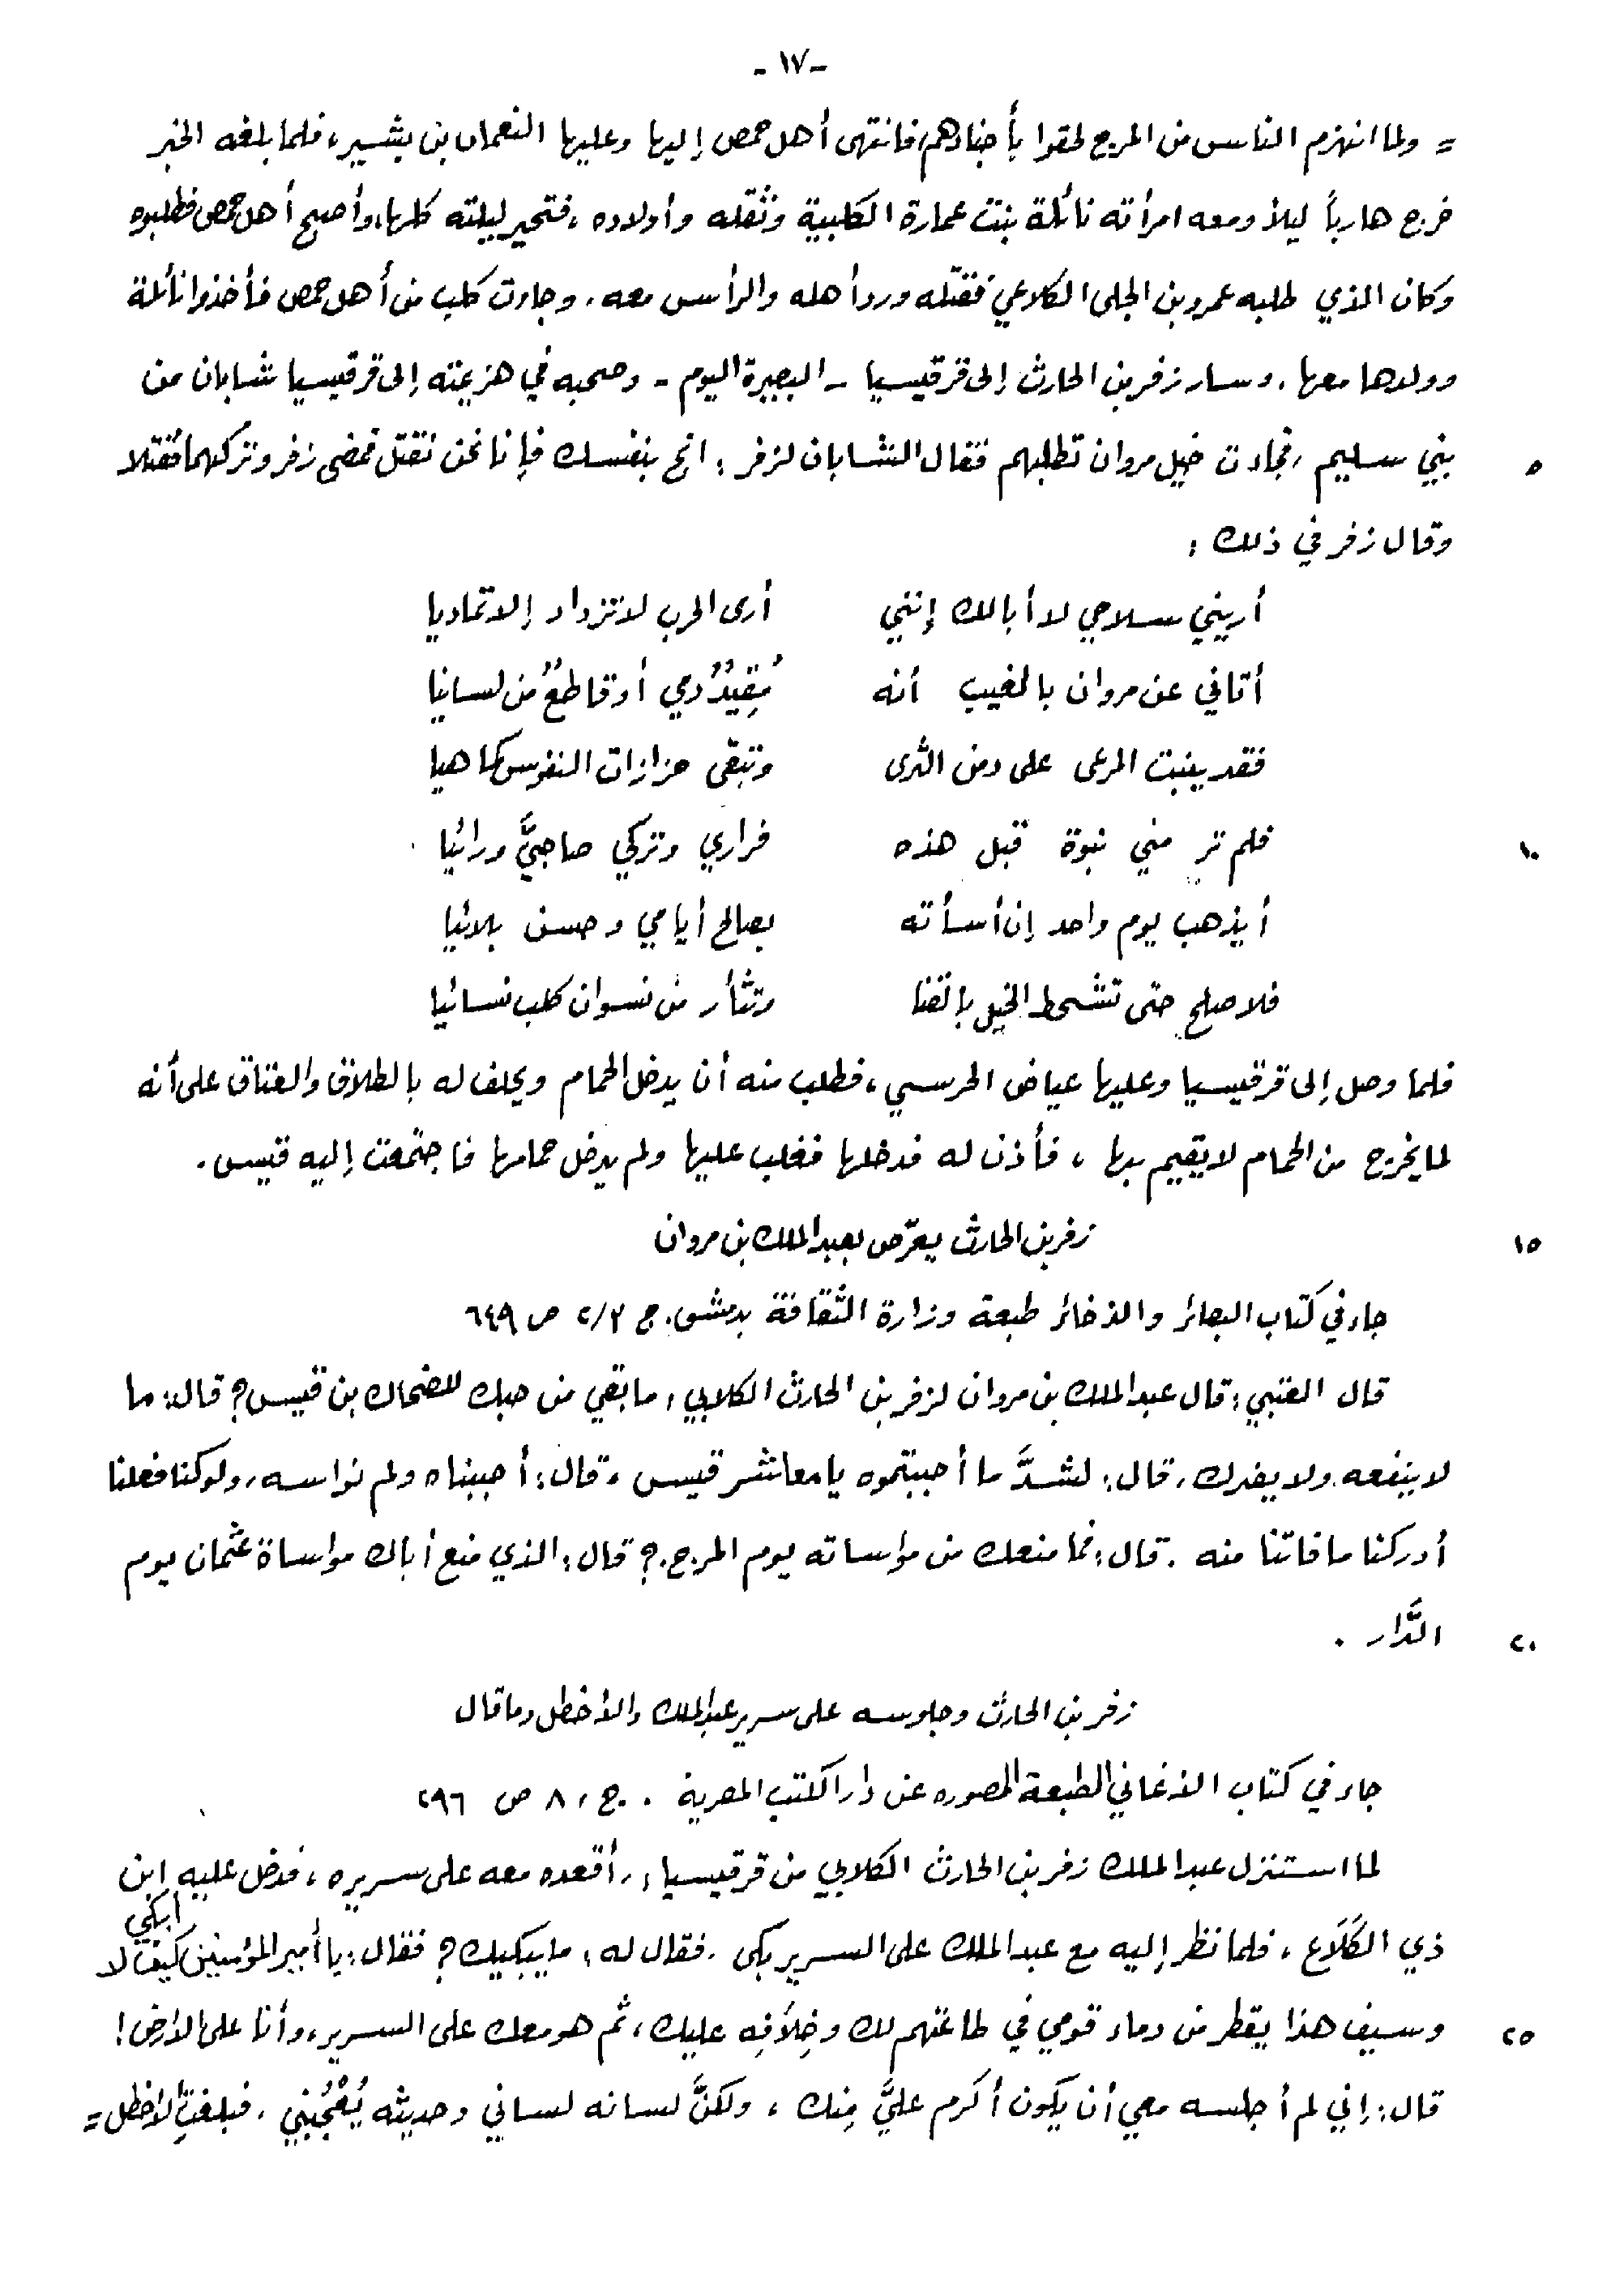 -١٧-
= ولما انهزم الناس من المرج لحقوا بأجنادهم، فانتهى أهل حمص إليها وعليها النعمان بن بشير، فلما بلغه الخبر
خرج هارباً ليلاً ومعه امرأته نائلة بنت عمارة الكلبية وثقله وأولاده، فتحير ليلته كلها، وأصبح أهل حمص فطلبوه
وكان الذي طلبه عمرو بن الجلي الكلاعي فقتله ورد أهله والرأس معه. وجاءت كلب من أهل حمص فأخذوا نائلة
وولدها معها. وسار زفر بن الحارث إلى قرقيسيا - البصيرة اليوم - وصحبه في هزيمته إلى قرقيسيا شابان من
بني سليم، فجاءت خيل مروان تطلبهم فقال الشابان لزفر: انج بنفسك فإنا نحن نقتل فمضى زفر وتركهما فقتلا ٥
وقال زفر في ذلك:
أريني سلاحي لا أبا لك إنني أرى الحرب لا تزداد إلا تماديا
أتاني عن مروان بالغيب أنه مُقِيدٌ دمي أو قاطعٌ من لسانيا
فقد ينبت المرعى على دمن الثرى وتبقى حزازات النفوس كما هيا
فلم تر مني نبوة قبل هذه فراري وتركي صاحبيَّ ورائيا ١٠
أيذهب يوم واحد إن أسأته بصالح أيامي وحسن بلائيا
فلا صلح حتى تشحط الخيل بالقنا وتثأر من نسوان كلب نسائيا
فلما وصل إلى قرقيسيا وعليها عياض الحرسي، فطلب منه أن يدخل الحمام ويحلف له بالطلاق والعتاق على أنه
لما يخرج من الحمام لا يقيم بها، فأذن له فدخلها فغلب عليها ولم يدخل حمامها فاجتمعت إليه قيس.
زفر بن الحارث يعرّض بعبد الملك بن مروان ١٥
جاء في كتاب البصائر والذخائر طبعة وزارة الثقافة بدمشق. ج ٢/٣ ص ٦٤٩
قال العتبي: قال عبد الملك بن مروان لزفر بن الحارث الكلابي: ما بقي من حبك للضحاك بن قيس؟ قال: ما
لا ينفعه ولا يضرك. قال: لشدَّ ما أحببتموه يا معاشر قيس، قال: أحببناه ولم نواسه، ولو كنا فعلنا
أدركنا ما فاتنا منه. قال: فما منعك من مؤاساته يوم المرج؟ قال: الذي منع أباك مواساة عثمان يوم
الدَّار. ٢٠
زفر بن الحارث وجلوسه على سرير عبد الملك والأخطل وما قال
جاء في كتاب الأغاني الطبعة المصوره عن دار الكتب المصرية. ج، ٨ ص ٢٩٦
لما استنزل عبد الملك زفر بن الحارث الكلابي من قرقيسيا، أقعده معه على سريره، فدخل عليه ابن
ذي الكَلَاع، فلما نظر إليه مع عبد الملك على السرير بكى. فقال له: ما يبكيك؟ فقال: يا أمير المؤمنين كيف لا أبكي
وسيف هذا يقطر من دماء قومي في طاعتهم لك وخِلَافِه عليك، ثم هو معك على السرير، وأنا على الأرض! ٢٥
قال: إني لم أجلسه معي أن يكون أكرم عليَّ مِنك، ولكنَّ لسانه لساني وحديثه يُعْجُبني. فبلغتِ الأخطل =